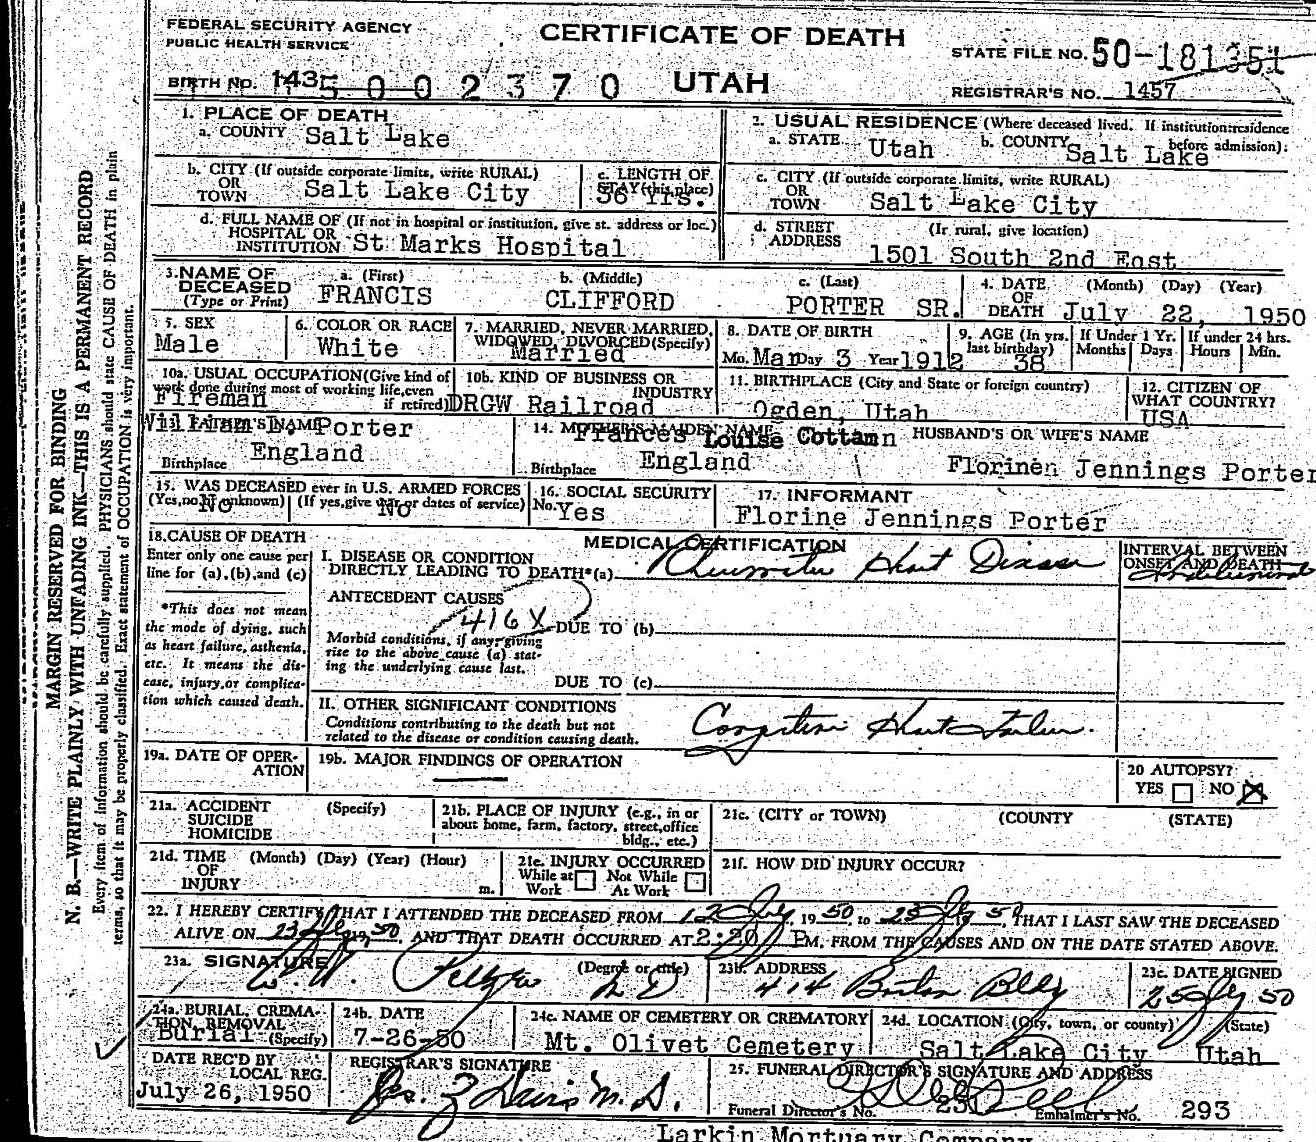 FEDERAL SECURITY AGENCY
PUBLIC HEALTH SERVICE
CERTIFICATE OF DEATH
STATE FILE NO. 50-181351
BIRTH NO. 143 5 0 0 2 3 7 0 UTAH
REGISTRAR'S NO. 1457
1. PLACE OF DEATH
a. COUNTY Salt Lake
2. USUAL RESIDENCE (Where deceased lived. If institution:residence before admission):
a. STATE Utah b. COUNTY Salt Lake
b. CITY (If outside corporate limits, write RURAL)
OR
TOWN Salt Lake City
c. LENGTH OF
STAY(this place)
36 Yrs.
c. CITY (If outside corporate limits, write RURAL)
OR
TOWN Salt Lake City
d. FULL NAME OF (If not in hospital or institution, give st. address or loc.)
HOSPITAL OR
INSTITUTION St Marks Hospital
d. STREET (If rural, give location)
ADDRESS
1501 South 2nd East
3. NAME OF
DECEASED
(Type or Print)
a. (First)
FRANCIS
b. (Middle)
CLIFFORD
c. (Last)
PORTER SR.
4. DATE (Month) (Day) (Year)
OF
DEATH July 22, 1950
5. SEX
Male
6. COLOR OR RACE
White
7. MARRIED, NEVER MARRIED,
WIDOWED, DIVORCED(Specify)
Married
8. DATE OF BIRTH
Mo. Mar Day 3 Year 1912
9. AGE (In yrs.
last birthday)
38
If Under 1 Yr.
Months Days
If under 24 hrs.
Hours Min.
10a. USUAL OCCUPATION(Give kind of
work done during most of working life,even
if retired)
Fireman
10b. KIND OF BUSINESS OR
INDUSTRY
DRGW Railroad
11. BIRTHPLACE (City and State or foreign country)
Ogden, Utah
12. CITIZEN OF
WHAT COUNTRY?
USA
FATHER'S NAME
William L. Porter
Birthplace England
14. MOTHER'S MAIDEN NAME
Frances Louise Cottam
Birthplace England
HUSBAND'S OR WIFE'S NAME
Florinen Jennings Porter
15. WAS DECEASED ever in U.S. ARMED FORCES
(Yes,no, unknown) No
(If yes,give war or dates of service) No
16. SOCIAL SECURITY
No. Yes
17. INFORMANT
Florine Jennings Porter
18. CAUSE OF DEATH
Enter only one cause per
line for (a),(b),and (c)
*This does not mean
the mode of dying, such
as heart failure, asthenia,
etc. It means the dis-
ease, injury,or complica-
tion which caused death.
MEDICAL CERTIFICATION
I. DISEASE OR CONDITION
DIRECTLY LEADING TO DEATH*(a) Rheumatic Heart Disease
INTERVAL BETWEEN
ONSET AND DEATH
ANTECEDENT CAUSES
416X DUE TO (b)
Morbid conditions, if any, giving
rise to the above cause (a) stat-
ing the underlying cause last.
DUE TO (c)
II. OTHER SIGNIFICANT CONDITIONS
Conditions contributing to the death but not
related to the disease or condition causing death.
Congestive Heart Failure.
19a. DATE OF OPER-
ATION
19b. MAJOR FINDINGS OF OPERATION
20 AUTOPSY?
YES NO X
21a. ACCIDENT (Specify)
SUICIDE
HOMICIDE
21b. PLACE OF INJURY (e.g., in or
about home, farm, factory, street,office
bldg., etc.)
21c. (CITY or TOWN) (COUNTY (STATE)
21d. TIME (Month) (Day) (Year) (Hour)
OF
INJURY m.
21e. INJURY OCCURRED
While at Not While
Work At Work
21f. HOW DID INJURY OCCUR?
22. I HEREBY CERTIFY THAT I ATTENDED THE DECEASED FROM 12 July, 1950, to 23 July 50, THAT I LAST SAW THE DECEASED
ALIVE ON 23 July, 1950, AND THAT DEATH OCCURRED AT 2:20 PM, FROM THE CAUSES AND ON THE DATE STATED ABOVE.
23a. SIGNATURE (Degree or title)
W. M. M D
23b. ADDRESS
414 Boston Bldg
23c. DATE SIGNED
25 July 50
24a. BURIAL, CREMA-
TION, REMOVAL
(Specify) Burial
24b. DATE
7-26-50
24c. NAME OF CEMETERY OR CREMATORY
Mt. Olivet Cemetery
24d. LOCATION (City, town, or county) (State)
Salt Lake City Utah
DATE REC'D BY
LOCAL REG.
July 26, 1950
REGISTRAR'S SIGNATURE
Davis M. D.
25. FUNERAL DIRECTOR'S SIGNATURE AND ADDRESS
Funeral Director's No. 231 Embalmer's No. 293
Larkin Mortuary Company
MARGIN RESERVED FOR BINDING
N. B.—WRITE PLAINLY WITH UNFADING INK—THIS IS A PERMANENT RECORD
Every item of information should be carefully supplied. PHYSICIANS should state CAUSE OF DEATH in plain
terms, so that it may be properly classified. Exact statement of OCCUPATION is very important.